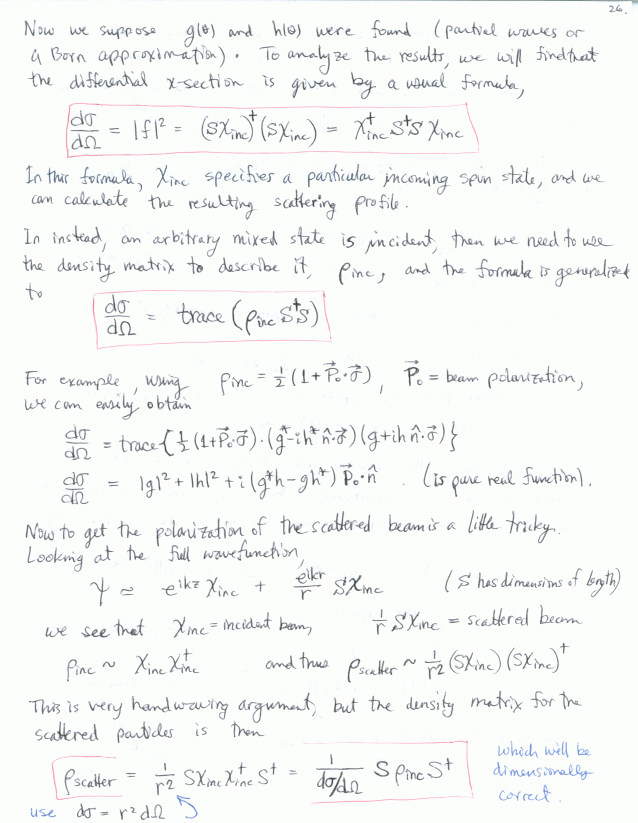 26.
Now we suppose g(θ) and h(θ) were found (partial waves or
a Born approximation). To analyze the results, we will find that
the differential x-section is given by a usual formula,
dσ/dΩ = |f|² = (Sχinc)†(Sχinc) = χ†inc S†S χinc
In this formula, χinc specifies a particular incoming spin state, and we
can calculate the resulting scattering profile.
In instead, an arbitrary mixed state is incident, then we need to use
the density matrix to describe it, ρinc, and the formula is generalized
to
dσ/dΩ = trace (ρinc S†S)
For example, using ρinc = ½(1+P⃗₀·σ⃗), P⃗₀ = beam polarization,
we can easily obtain
dσ/dΩ = trace{½(1+P⃗₀·σ⃗)·(g*-ih* n̂·σ⃗)(g+ih n̂·σ⃗)}
dσ/dΩ = |g|² + |h|² + i(g*h-gh*) P⃗₀·n̂ . (is pure real function).
Now to get the polarization of the scattered beam is a little tricky.
Looking at the full wavefunction,
ψ ≃ e^{ikz} χinc + e^{ikr}/r Sχinc (S has dimensions of length)
we see that χinc = incident beam, 1/r Sχinc = scattered beam
ρinc ~ χinc χ†inc and thus ρscatter ~ 1/r² (Sχinc)(Sχinc)†
This is very handwaving argument, but the density matrix for the
scattered particles is then
ρscatter = 1/r² Sχinc χ†inc S† = 1/(dσ/dΩ) S ρinc S†
which will be
dimensionally
correct.
use dσ = r²dΩ